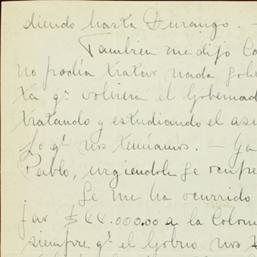 diendo hasta Durango. —
Tambien me dijo
no podía tratar nada
ta q. volviera el Gobernad
tratando y estudiando el asu
lo q. nos temíamos. — Ya
Pablo, urgiendole se ocupe
Se me ha ocurrido
jar $44.000.00 a la Colon
siempre q. el Gobno nos